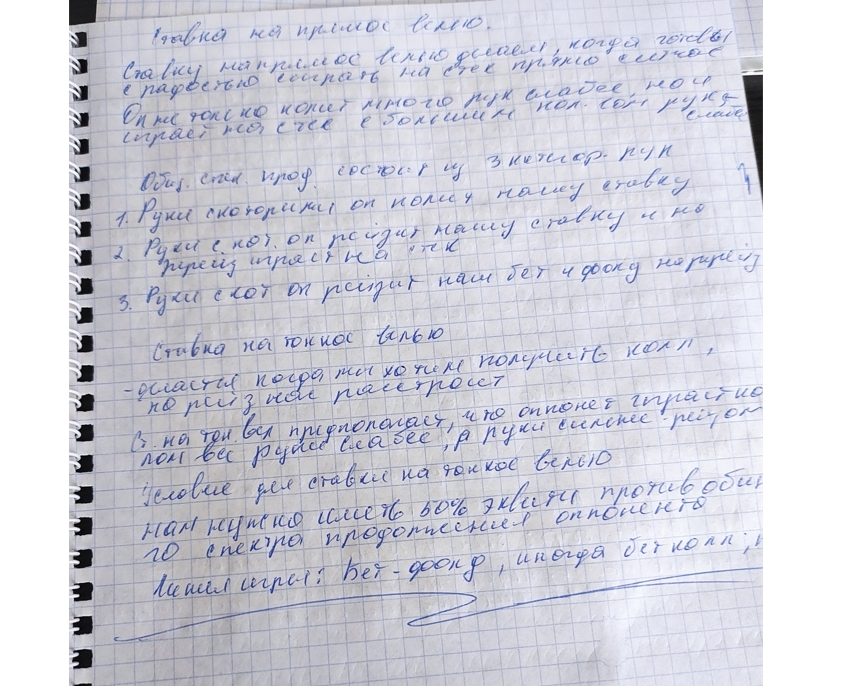 Ставка на прямое велью.
Ставку на прямое велью делаем, когда готовы
с радостью сыграть на стек прямо сейчас
Он не только колит много рук слабее, но и
играет на стек с большим кол. ком рук
слабее
Общ. спек. прод. состоит из 3 категор. рук
1. Руки с которыми он колит нашу ставку
2. Руки с кот. он рейзит нашу ставку и на
ререйз играет на стек
3. Руки с кот он рейзит наш бет и фолд на ререйз
Ставка на тонкое велью
- делается когда мы хотим получить колл,
но рейз нас расстроит
Ст. на тон вел предполагает, что оппонет играет ко
лом все руки слабее, а руки сильнее - рейзом
Условие для ставки на тонкое велью
нам нужно иметь 50% эквити против общ
го спектра продолжения оппонента
Линия игры: Бет-фолд, иногда бет колл;